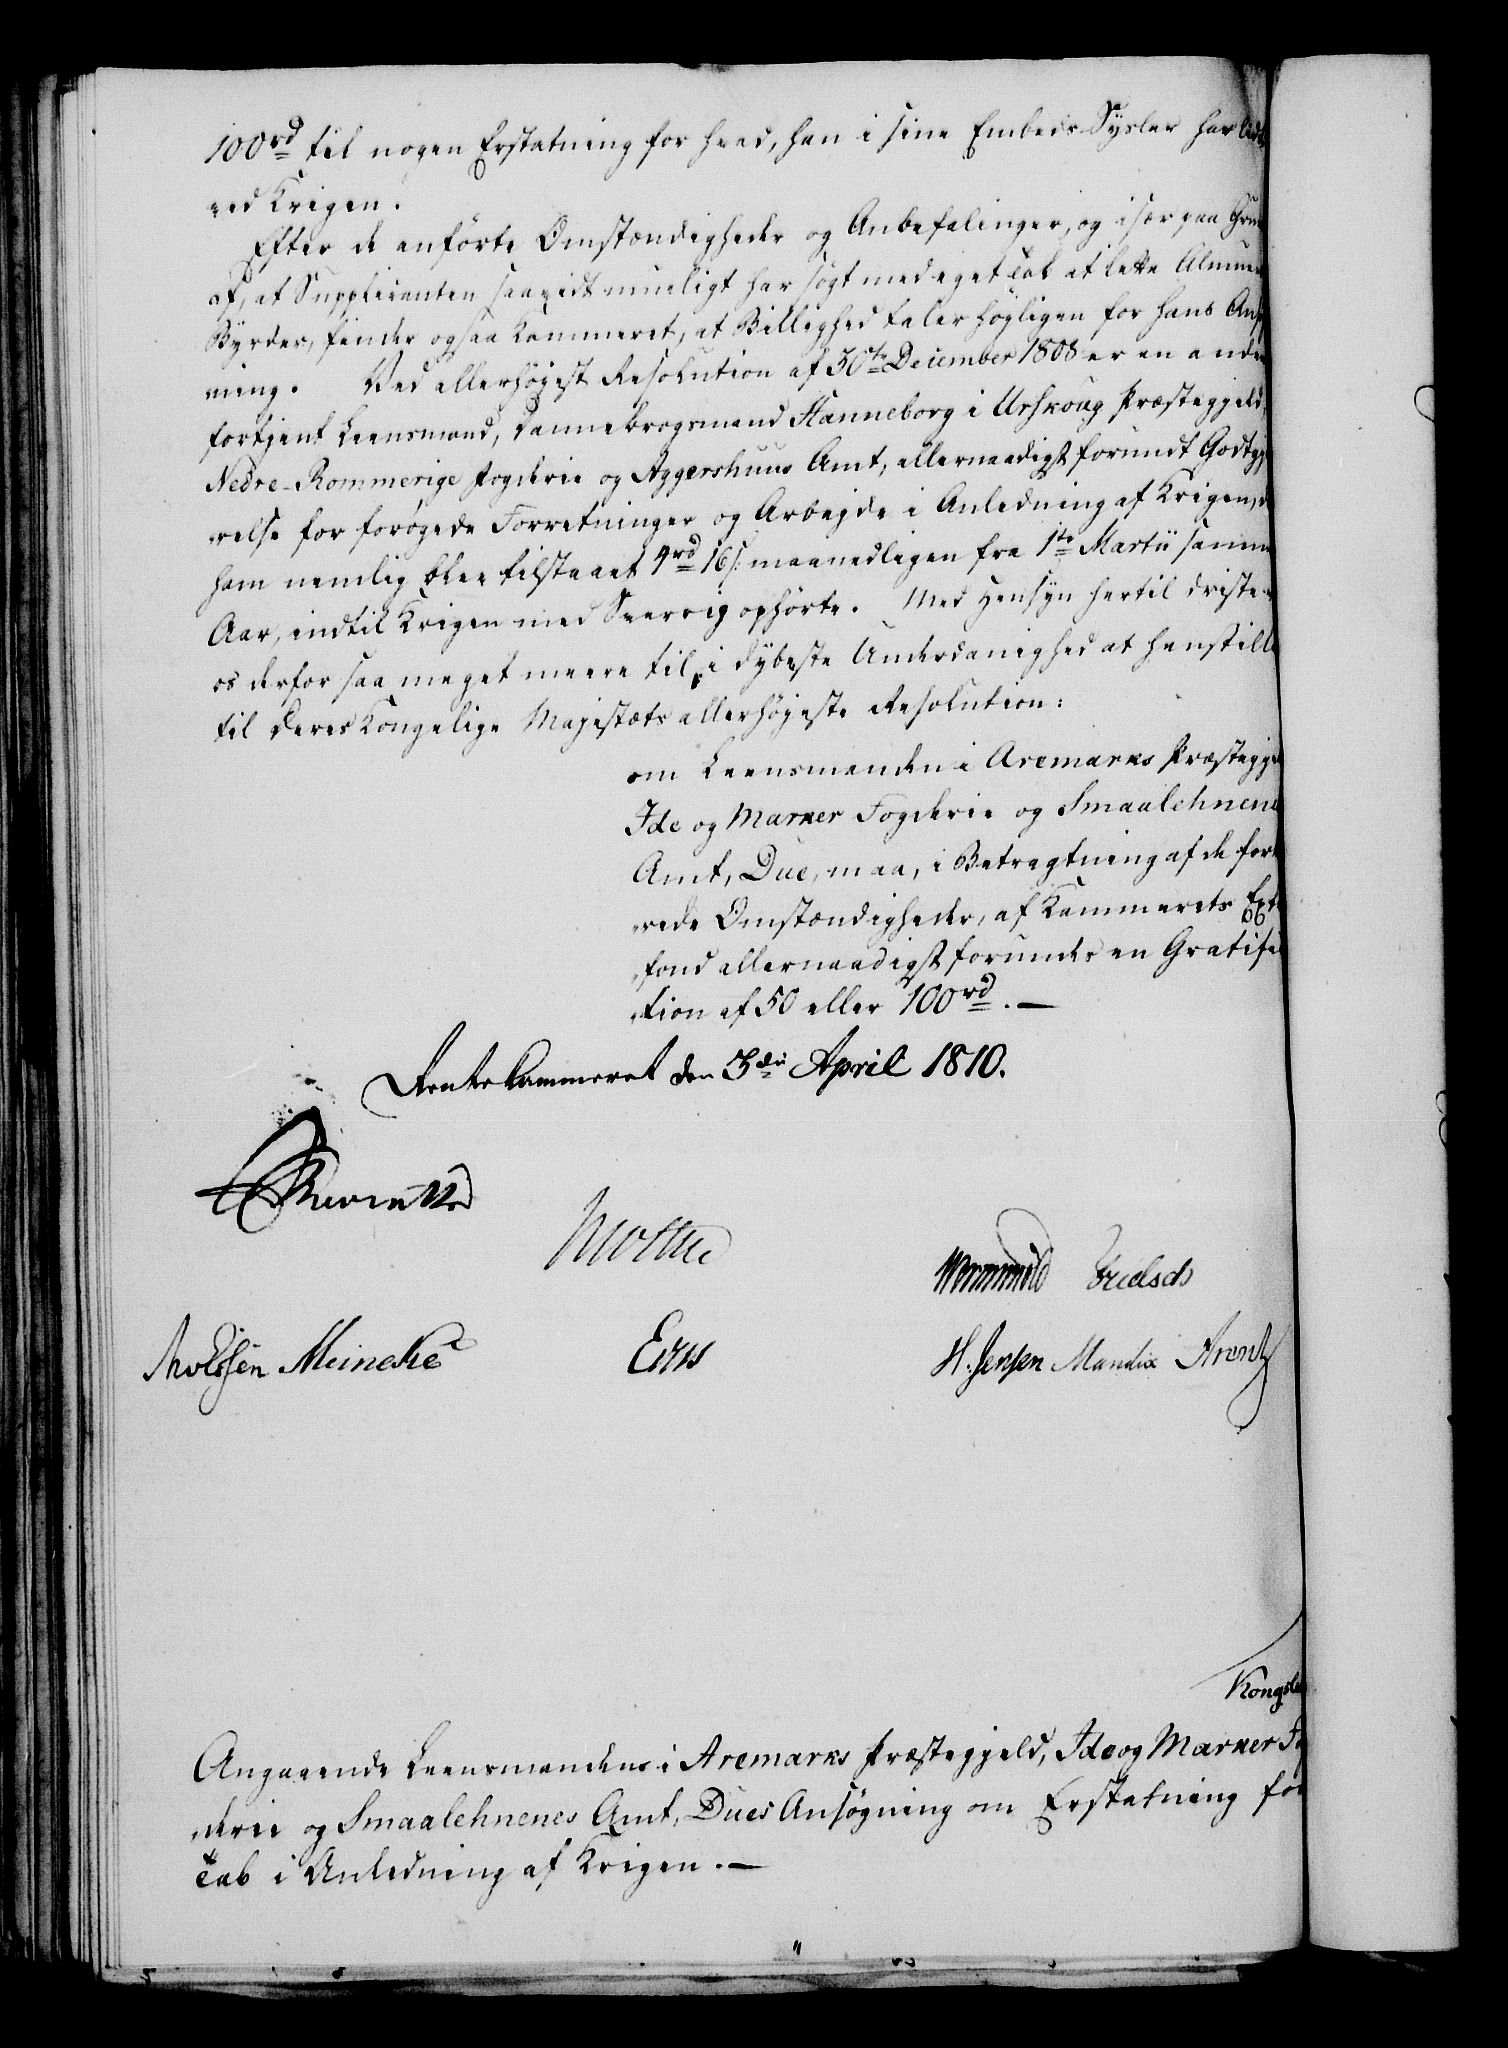 100rd til nogen Erstatning for hvad, han i sine Embeds-Sysler har lidt
ved Krigen.
Efter de anførte Omstændigheder og Anbefalinger, og især paa Grun
af, at Supplicanten saavidt mueligt har søgt med eget Tab at lette Almuens
Byrder, finder ogsaa Kammeret, at Billighed taler høyligen for hans Ansøg
ning. Ved allerhøyest Resolution af 30te December 1808 er en anden
fortjent Leensmand, Dannebrogsmand Hanneborg i Urskoug Præstegjeld,
Nedre-Rommerige Fogderie og Aggershuus Amt, allernaadigst forundt Godtgjø
relse for forøgede Forretninger og Arbejde i Anledning af Krigen, d
ham nemlig blev tilstaaet 4rd 16s: maanedligen fra 1te Martii samme
Aar, indtil Krigen med Sverrig ophørte. Med Hensyn hertil driste vi
os derfor saa meget meere til, i dybeste Underdanighed at henstille
til Deres Kongelige Majestæts allerhøyeste Resolution:
om Leensmanden i Aremarks Præstegje
Ide og Marker Fogderie og Smaalehnenes
Amt, Due, maa, i Betragtning af de fore
rede Omstændigheder, af Kammerets Extra
fond allernaadigst forundes en Gratifica
tion af 50 eller 100rd. —
Rentekammeret den 3die April 1810.
Reventlow
Moltke
Wormskiold
Knoblauch Meincke
H. Jensen Mandix Arentz
Kongel
Angaaende Leensmandens i Aremarks Præstegjeld, Ide og Marker Fo
derie og Smaalehnenes Amt, Dues Ansøgning om Erstatning for
Tab i Anledning af Krigen. —